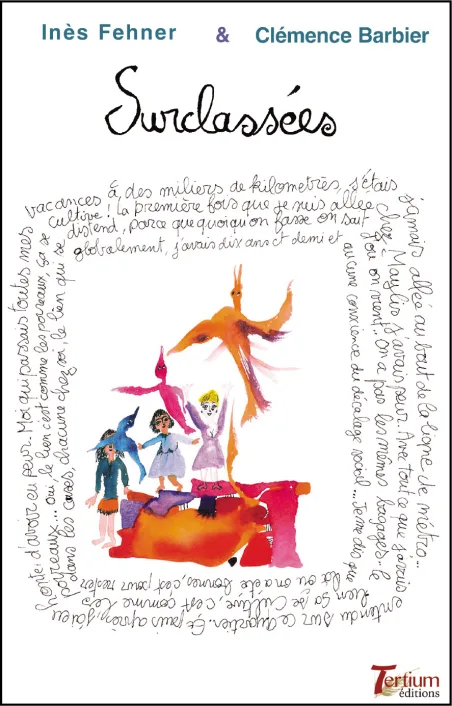 Inès Fehner & Clémence Barbier
Surclassées
vacances à des miliers de kilomètres, j'étais
cultive ! La première fois que je suis allée
distend, parce que quoiqu'on fasse on sait
globalement, j'avais dix ans et demi et
jamais allée au bout de la ligne de métro...
chez Maylis j'avais peur. Avec tout ce que j'avais
d'où on vient. On a pas les mêmes bagages.. le
aucune conscience du décalage social... Je me dis que
là où on a été bonnes, c'est pour rester
lien ça se cultive, c'est comme les
entendu sur ce quartier. Et puis après, j'ai eu
honte d'avoir eu peur. Moi qui passais toutes mes
poireaux... Oui, le lien c'est comme les poireaux, ça se
dans les cases, chacune chez soi, le lien qui se
Tertium
éditions